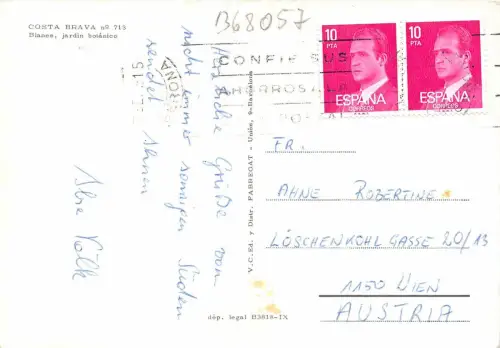 COSTA BRAVA nº 715
Blanes, jardín botánico
B68057
CONFIE SUS
AHORROS A LA
10 PTA
ESPAÑA
CORREOS
10 PTA
ESPAÑA
CORREOS
Herzliche Grüße vom
nicht immer sonnigen Süden
sendet Ihnen
Ihre Völk
V.C. Ed. y Distr. FABREGAT - Unión, 9 - Barcelona
dép. legal B3818-IX
FR.
AHNE ROBERTINE
LÖSCHENKOHLGASSE 20/13
1150 WIEN
AUSTRIA